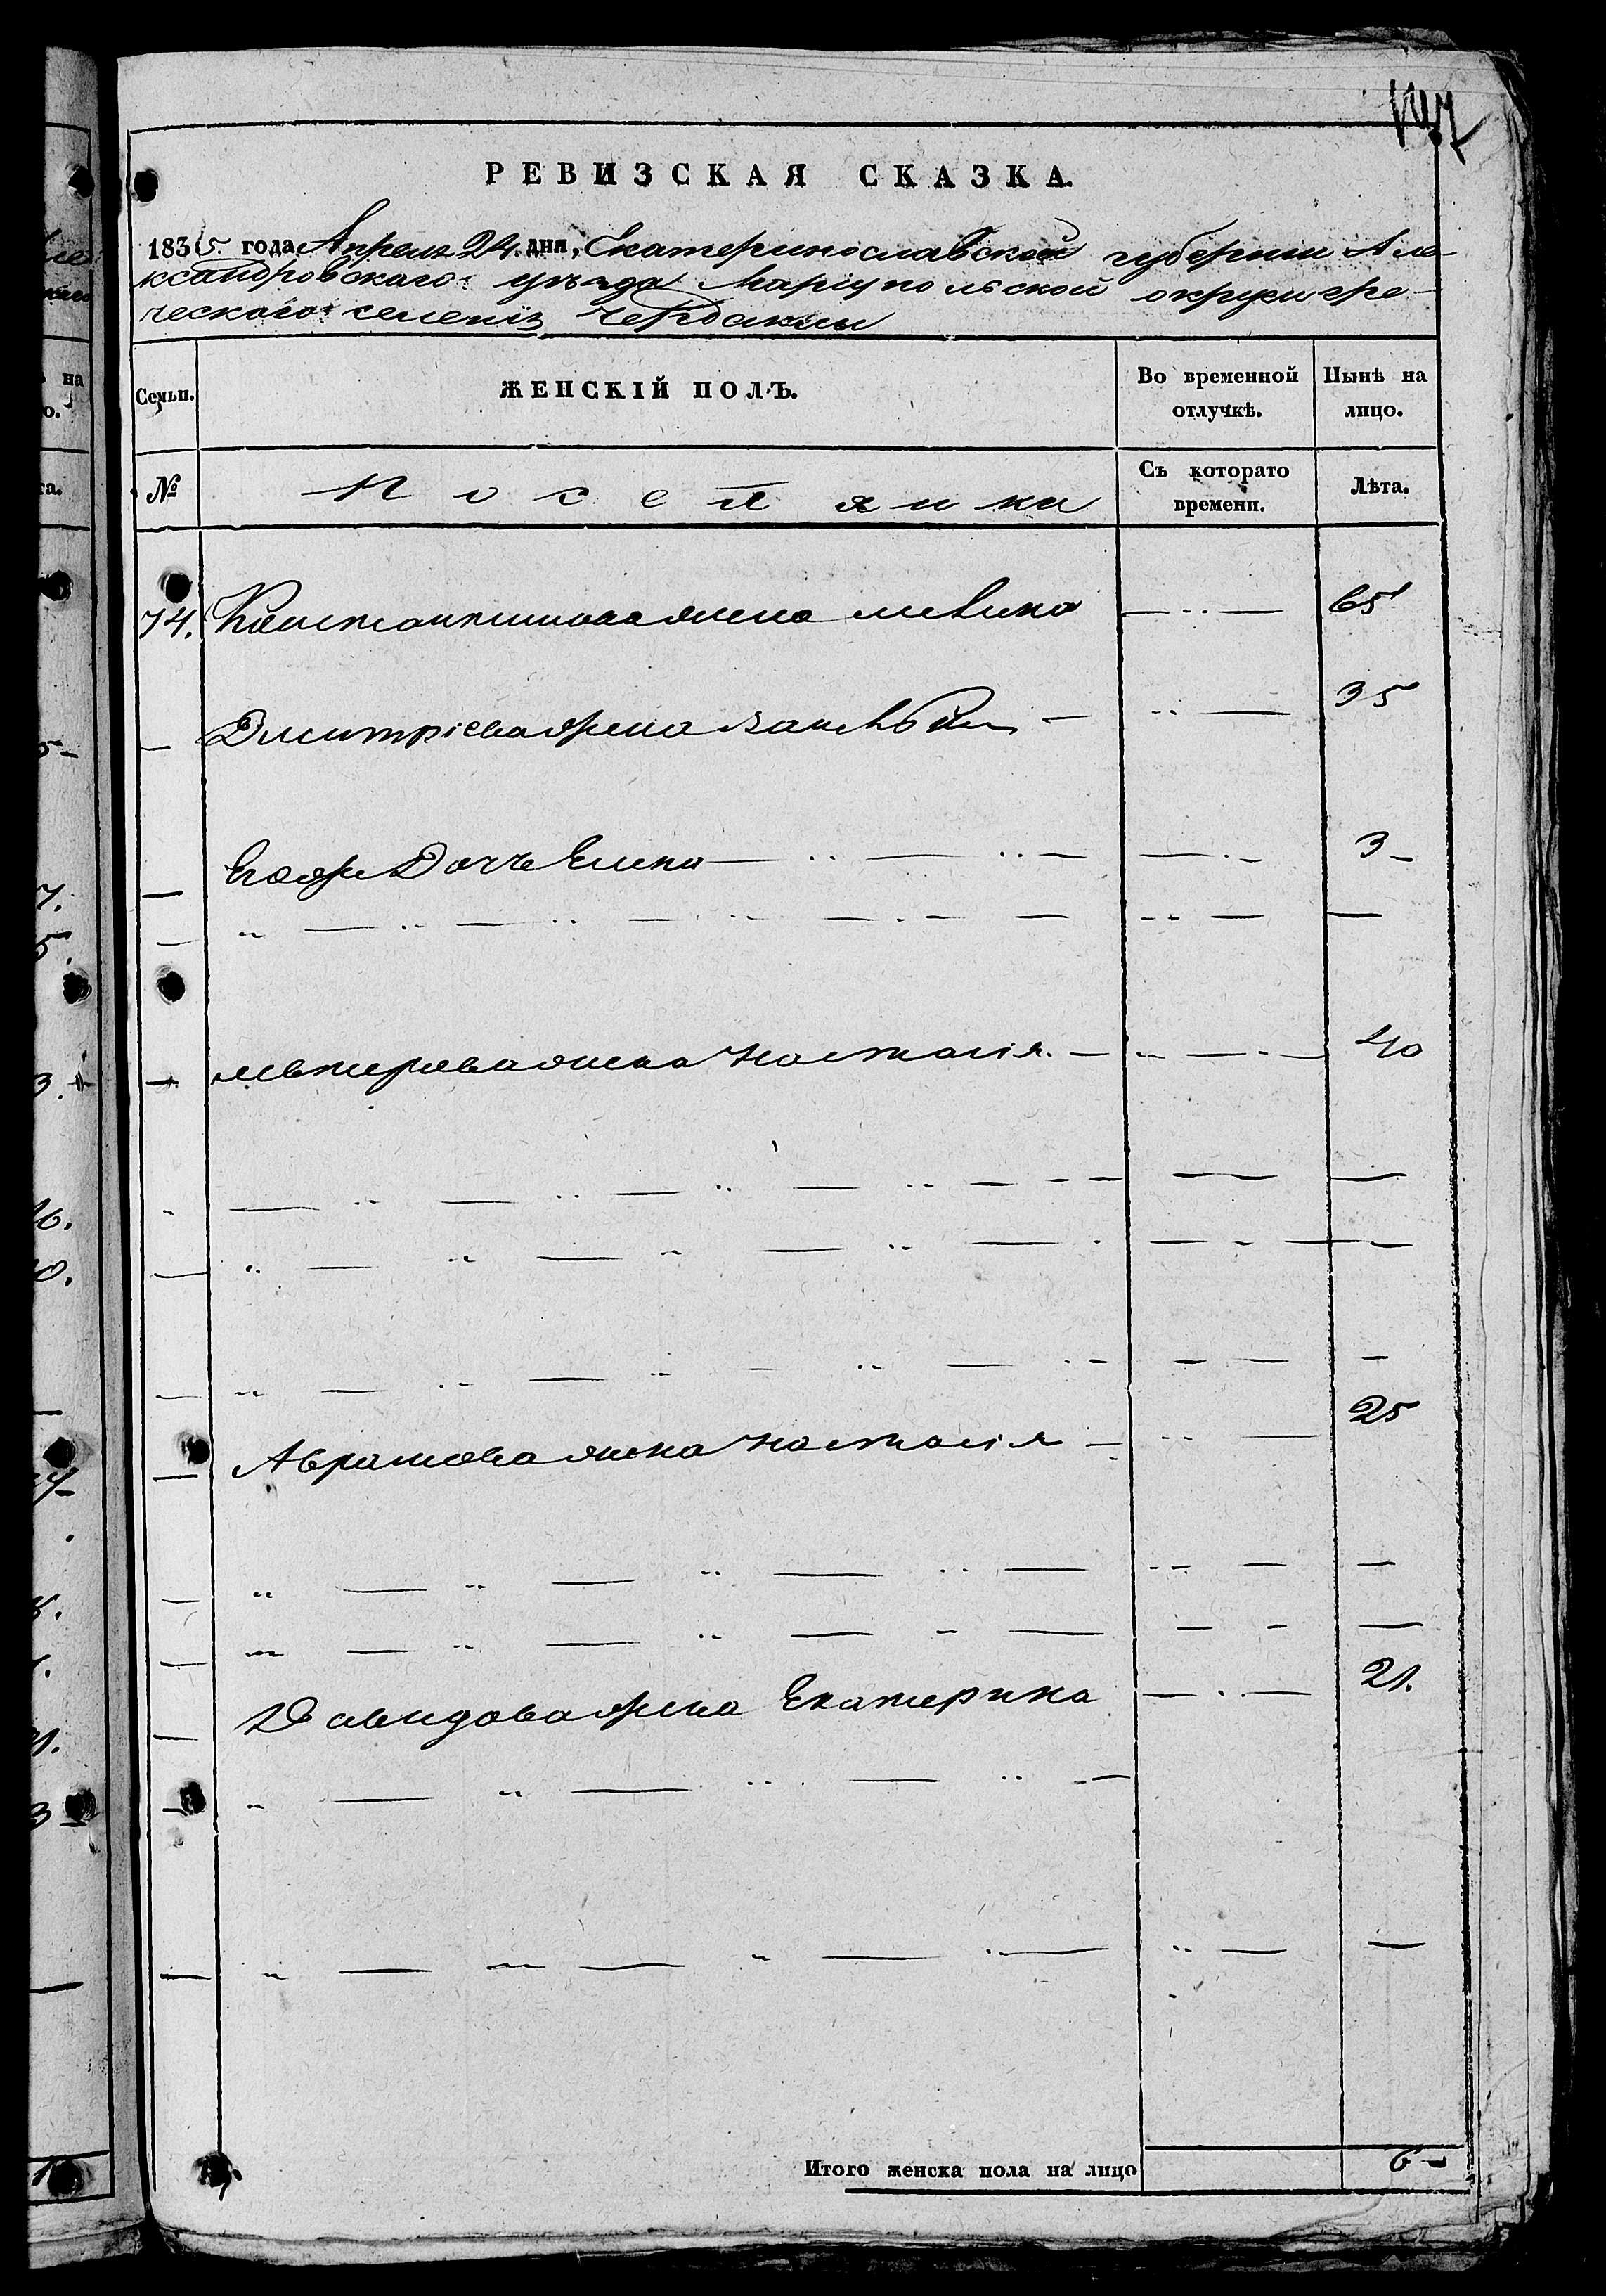 РЕВИЗСКАЯ СКАЗКА.
1835 года Апреля 24 дня, Екатеринославской губернии Але-
ксандровскаго уѣзда Маріупольской округи гре-
ческаго селенія Чердаклы
Семьи. ЖЕНСКІЙ ПОЛЪ. Во временной отлучкѣ. Нынѣ на лицо.
№ Поселянки Съ котораго времени. Лѣта.
74. Константинова жена 65
Дмитріева жена 35
Его же Дочь Елена 3
жена Настасія 40
Аврамова жена Настасія 25
Давидова жена Екатерина 21.
Итого женска пола на лицо 6